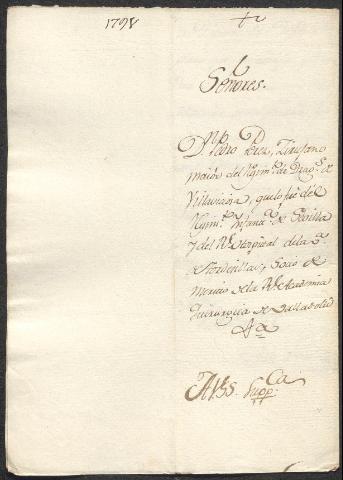 1798
Señores.
Dn Pedro Perez, Zirujano
maior del Rgimto de Drags de
Villaviciosa, que lo fué del
Rgimto Infanta de Sevilla
y del Rl Hospital de la
de Mordcillas, Socio de
Mercio de la Rl Academia
Quirurgica de Valladolid
A VSS. Suppca